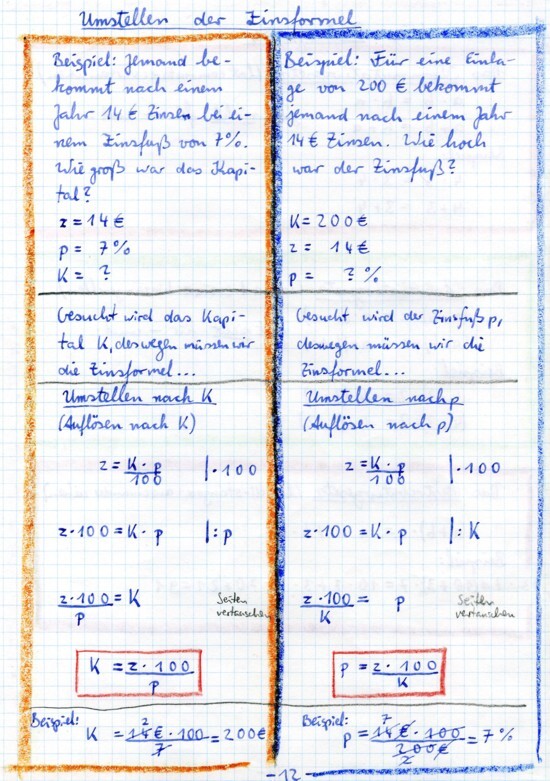 Umstellen der Zinsformel
Beispiel: Jemand be-
kommt nach einem
Jahr 14 € Zinsen bei ei-
nem Zinsfuß von 7%.
Wie groß war das Kapi-
tal?
z = 14 €
p = 7%
K = ?
Gesucht wird das Kapi-
tal K, deswegen müssen wir
die Zinsformel...
Umstellen nach K
(Auflösen nach K)
z = K · p / 100 | · 100
z · 100 = K · p | : p
z · 100 / p = K Seiten
vertauschen
K = z · 100 / p
Beispiel: K = 14 € · 100 / 7 = 200 €
2
Beispiel: Für eine Einla-
ge von 200 € bekommt
jemand nach einem Jahr
14 € Zinsen. Wie hoch
war der Zinsfuß?
K = 200 €
z = 14 €
p = ? %
Gesucht wird der Zinsfuß p,
deswegen müssen wir die
Zinsformel...
Umstellen nach p
(Auflösen nach p)
z = K · p / 100 | · 100
z · 100 = K · p | : K
z · 100 / K = p Seiten
vertauschen
p = z · 100 / K
Beispiel: p = 14 € · 100 / 200 € = 7%
7
2
- 12 -